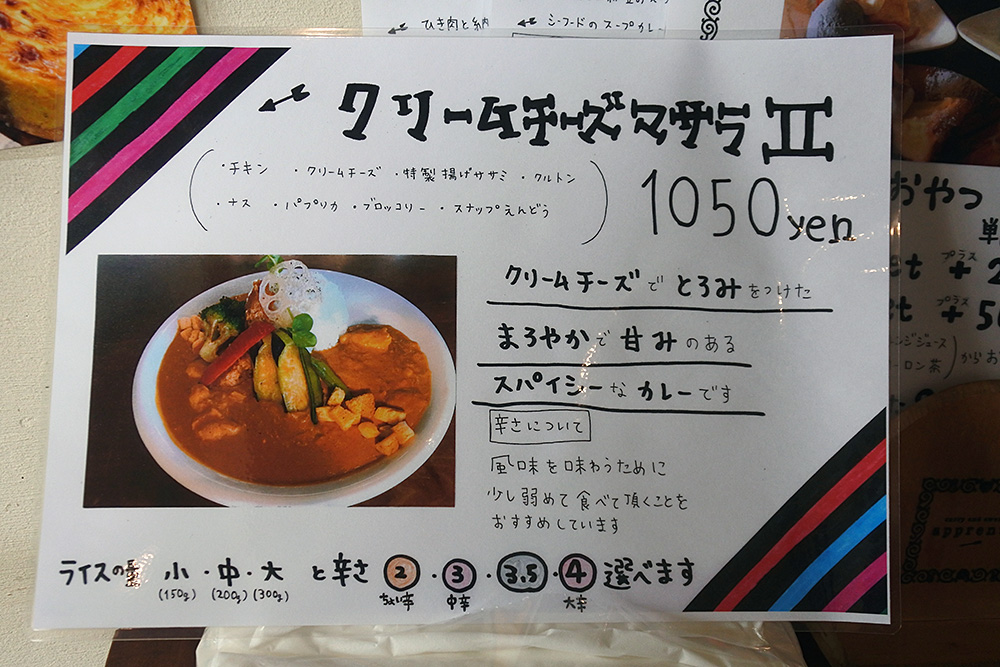 ひき肉と納
シーフードのスープカレー
クリームチーズマサラⅡ
・チキン ・クリームチーズ ・特製揚げササミ ・クルトン
・ナス ・パプリカ ・ブロッコリー ・スナップえんどう
1050yen
クリームチーズで とろみをつけた
まろやかで甘みのある
スパイシーなカレーです
辛さについて
風味を味わうために
少し弱めて食べて頂くことを
おすすめしています
ライスの量 小・中・大 と辛さ 2・3・3.5・4 選べます
(150g) (200g) (300g) ちょい辛 中辛 大辛
おやつ
単
et +2
プラス
et +50
プラス
ンジジュース
ーロン茶
からお